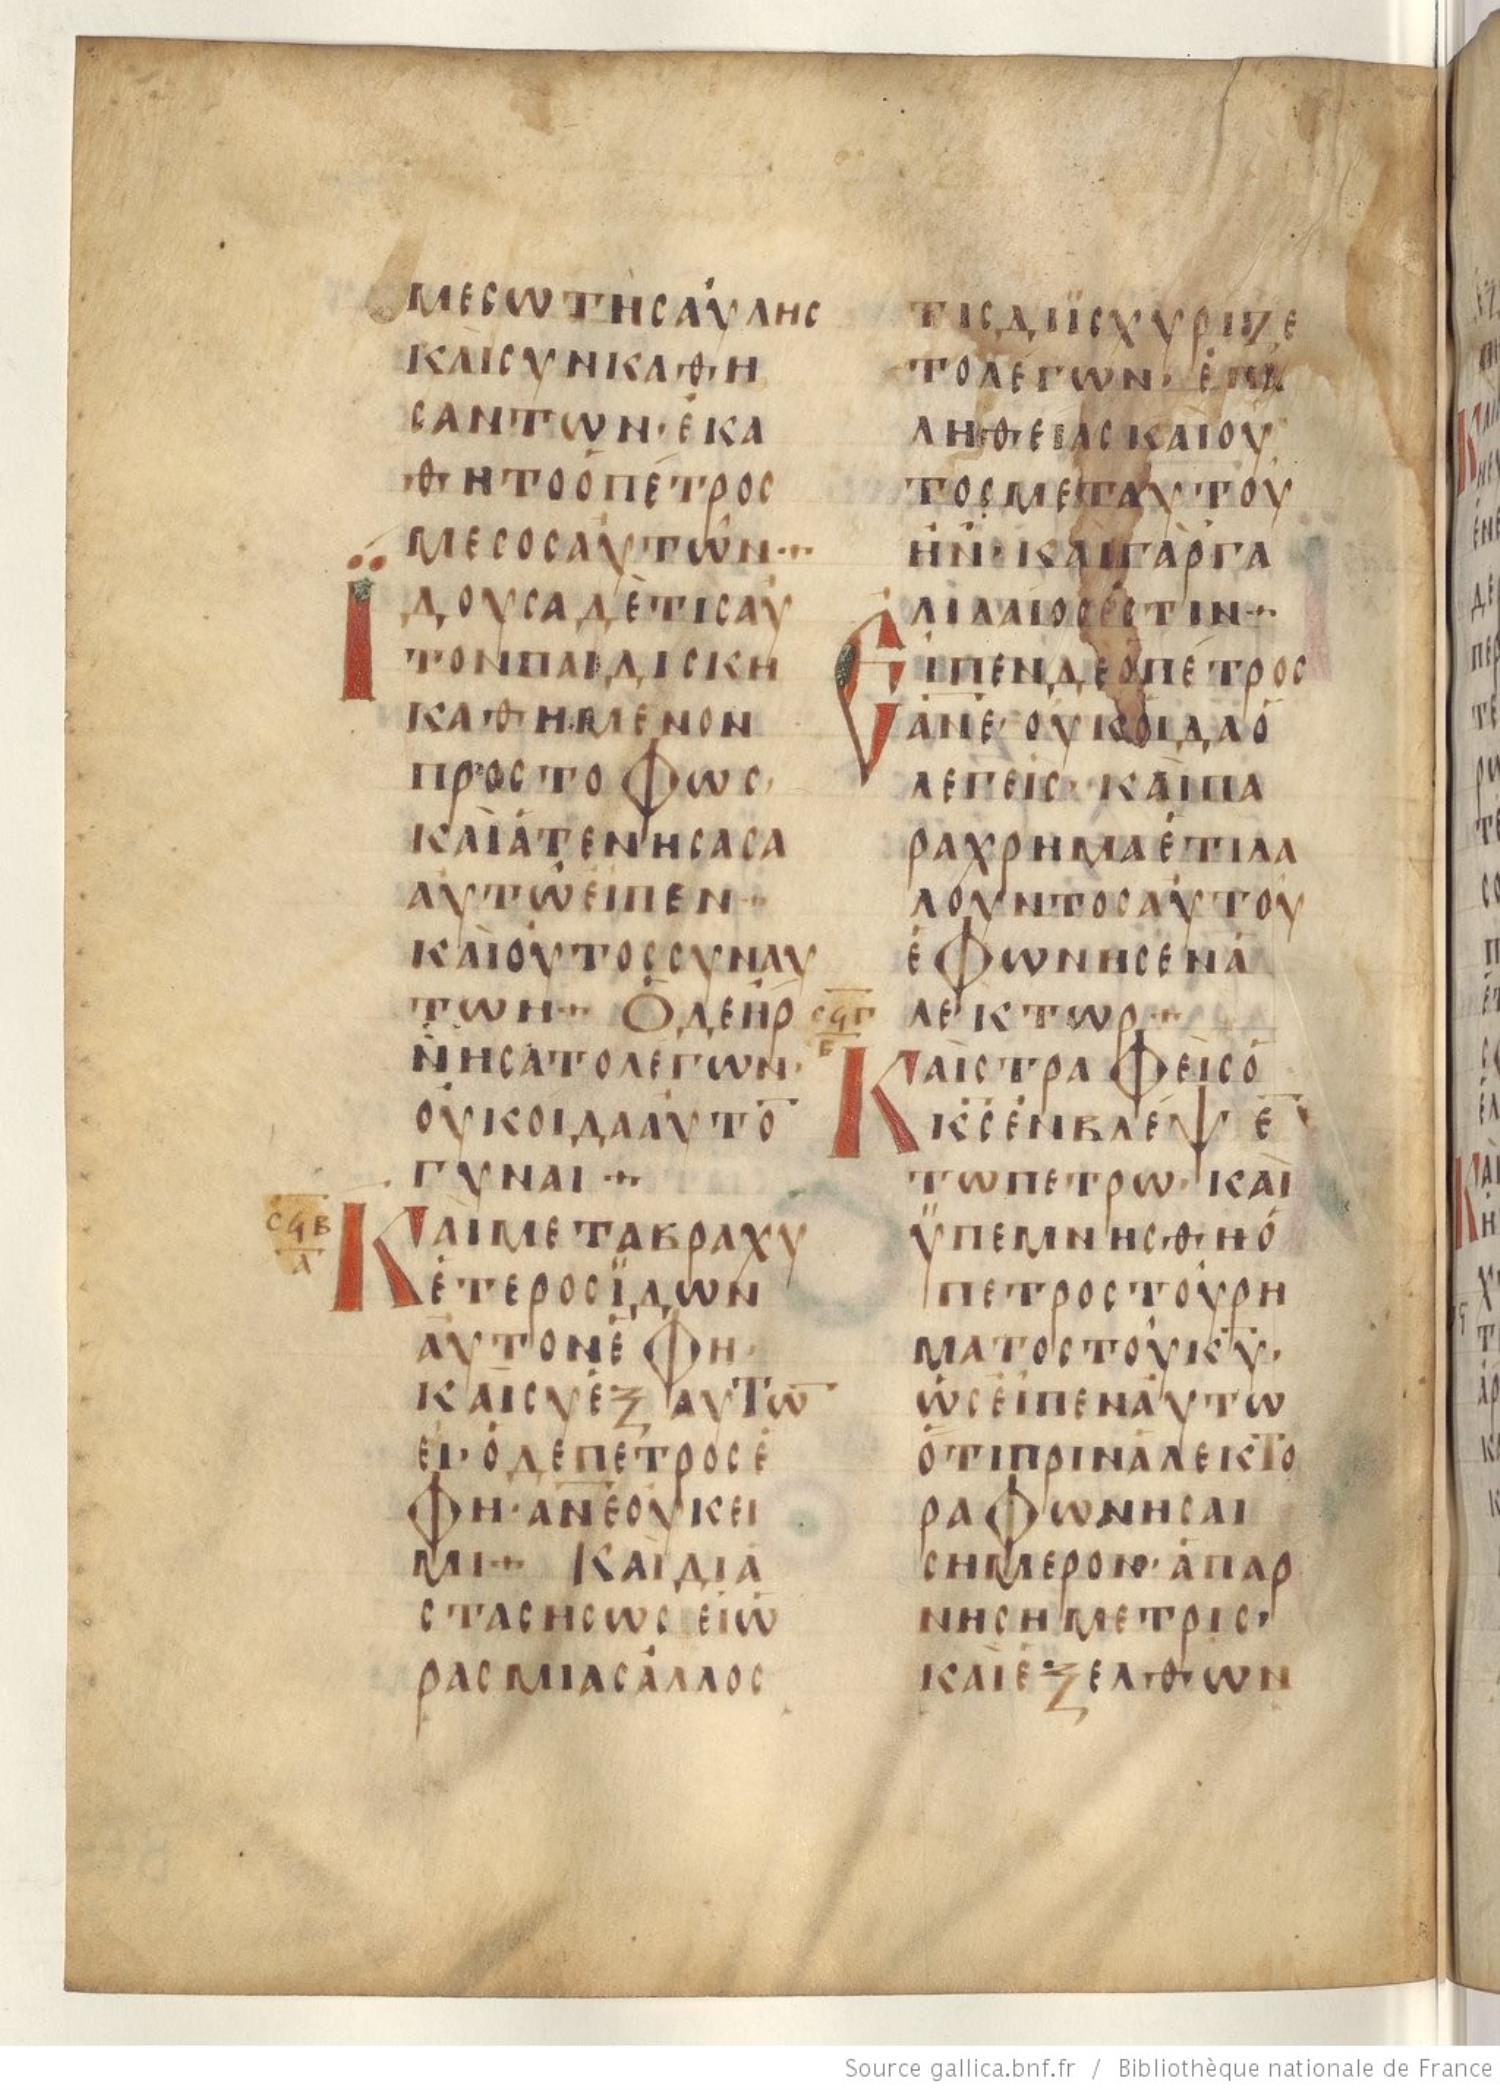 ΜΕСΩΤΗСΑΥΛΗС
ΚΑΙСΥΝΚΑΘΗ
СΑΝΤΩΝ·ΕΚΑ
ΘΗΤΟΟΠΕΤΡΟС
ΜΕСΟСΑΥΤΩΝ·
ΪΔΟΥСΑΔΕΤΙСΑΥ
ΤΟΝΠΑΙΔΙСΚΗ
ΚΑΘΗΜΕΝΟΝ
ΠΡΟСΤΟΦΩС·
ΚΑΙΑΤΕΝΗСΑСΑ
ΑΥΤΩΕΙΠΕΝ·
ΚΑΙΟΥΤΟССΥΝΑΥ
ΤΩΗ· ΟΔΕΗΡ
ΝΗСΑΤΟΛΕΓΩΝ·
ΟΥΚΟΙΔΑΑΥΤΟ̅
ΓΥΝΑΙ·
СϤΒ
Α
ΚΑΙΜΕΤΑΒΡΑΧΥ
ΕΤΕΡΟСΪΔΩΝ
ΑΥΤΟΝΕΦΗ·
ΚΑΙСΥΕΞΑΥΤΩ̅
ΕΙ·ΟΔΕΠΕΤΡΟСΕ
ΦΗ·Α̅Ν̅Ε̅ΟΥΚΕΙ
ΜΙ· ΚΑΙΔΙΑ
СΤΑСΗСΩСΕΙΩ
ΡΑСΜΙΑСΑΛΛΟС
ΤΙСΔΙΪСΧΥΡΙΖΕ
ΤΟΛΕΓΩΝ·ΕΠΑ
ΛΗΘΕΙΑСΚΑΙΟΥ
ΤΟСΜΕΤΑΥΤΟΥ
ΗΝ·ΚΑΙΓΑΡΓΑ
ΛΙΛΑΙΟСΕСΤΙΝ·
ΕΙΠΕΝΔΕΟΠΕΤΡΟС
Α̅Ν̅Ε̅·ΟΥΚΟΙΔΑΟ
ΛΕΓΕΙС·ΚΑΙΠΑ
ΡΑΧΡΗΜΑΕΤΙΛΑ
ΛΟΥΝΤΟСΑΥΤΟΥ
ΕΦΩΝΗСΕΝΑ
ΛΕΚΤΩΡ·
СϤΓ
Β
ΚΑΙСΤΡΑΦΕΙСΟ
Κ̅С̅ΕΝΒΛΕΨΕ̅
ΤΩΠΕΤΡΩ·ΚΑΙ
ΫΠΕΜΝΗСΘΗΟ
ΠΕΤΡΟСΤΟΥΡΗ
ΜΑΤΟСΤΟΥΚ̅Υ̅·
ΩСΕΙΠΕΝΑΥΤΩ
ΟΤΙΠΡΙΝΑΛΕΚΤΟ
ΡΑΦΩΝΗСΑΙ
СΗΜΕΡΟΝ·ΑΠΑΡ
ΝΗСΗΜΕΤΡΙС·
ΚΑΙΕΞΕΛΘΩΝ
Source gallica.bnf.fr / Bibliothèque nationale de France